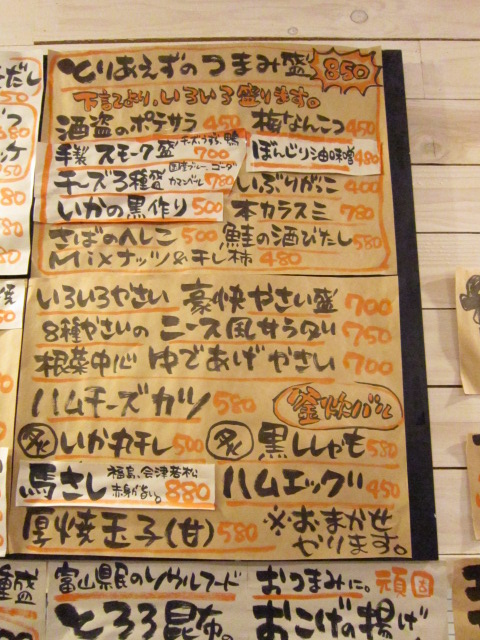 とりあえずのつまみ盛 850
下記より、いろいろ盛ります。
酒盗のポテサラ 450 梅なんこつ 450
手製 スモーク盛 チーズ、うずら、鴨 700 ぼんじり油味噌 480
チーズ3種盛 国産ブルー、ゴーダ カマンベール 780 いぶりがっこ 400
いかの黒作り 500 本カラスミ 780
さばのへしこ 500 鮭の酒びたし 580
Mixナッツ&干し柿 480
いろいろやさい 豪快やさい盛 700
8種やさいの ニース風サラダ 750
根菜中心 ゆであげやさい 700
ハムチーズカツ 580 釜炊バル
炙 いか丸干し 500 炙 黒ししゃも 580
馬さし 福島、会津若松 赤身が旨い。 880 ハムエッグ 450
厚焼玉子(甘) 580 ※おまかせ
やります。
富山県民のソウルフード おつまみに。 頑固
とろろ昆布の おこげの揚げ